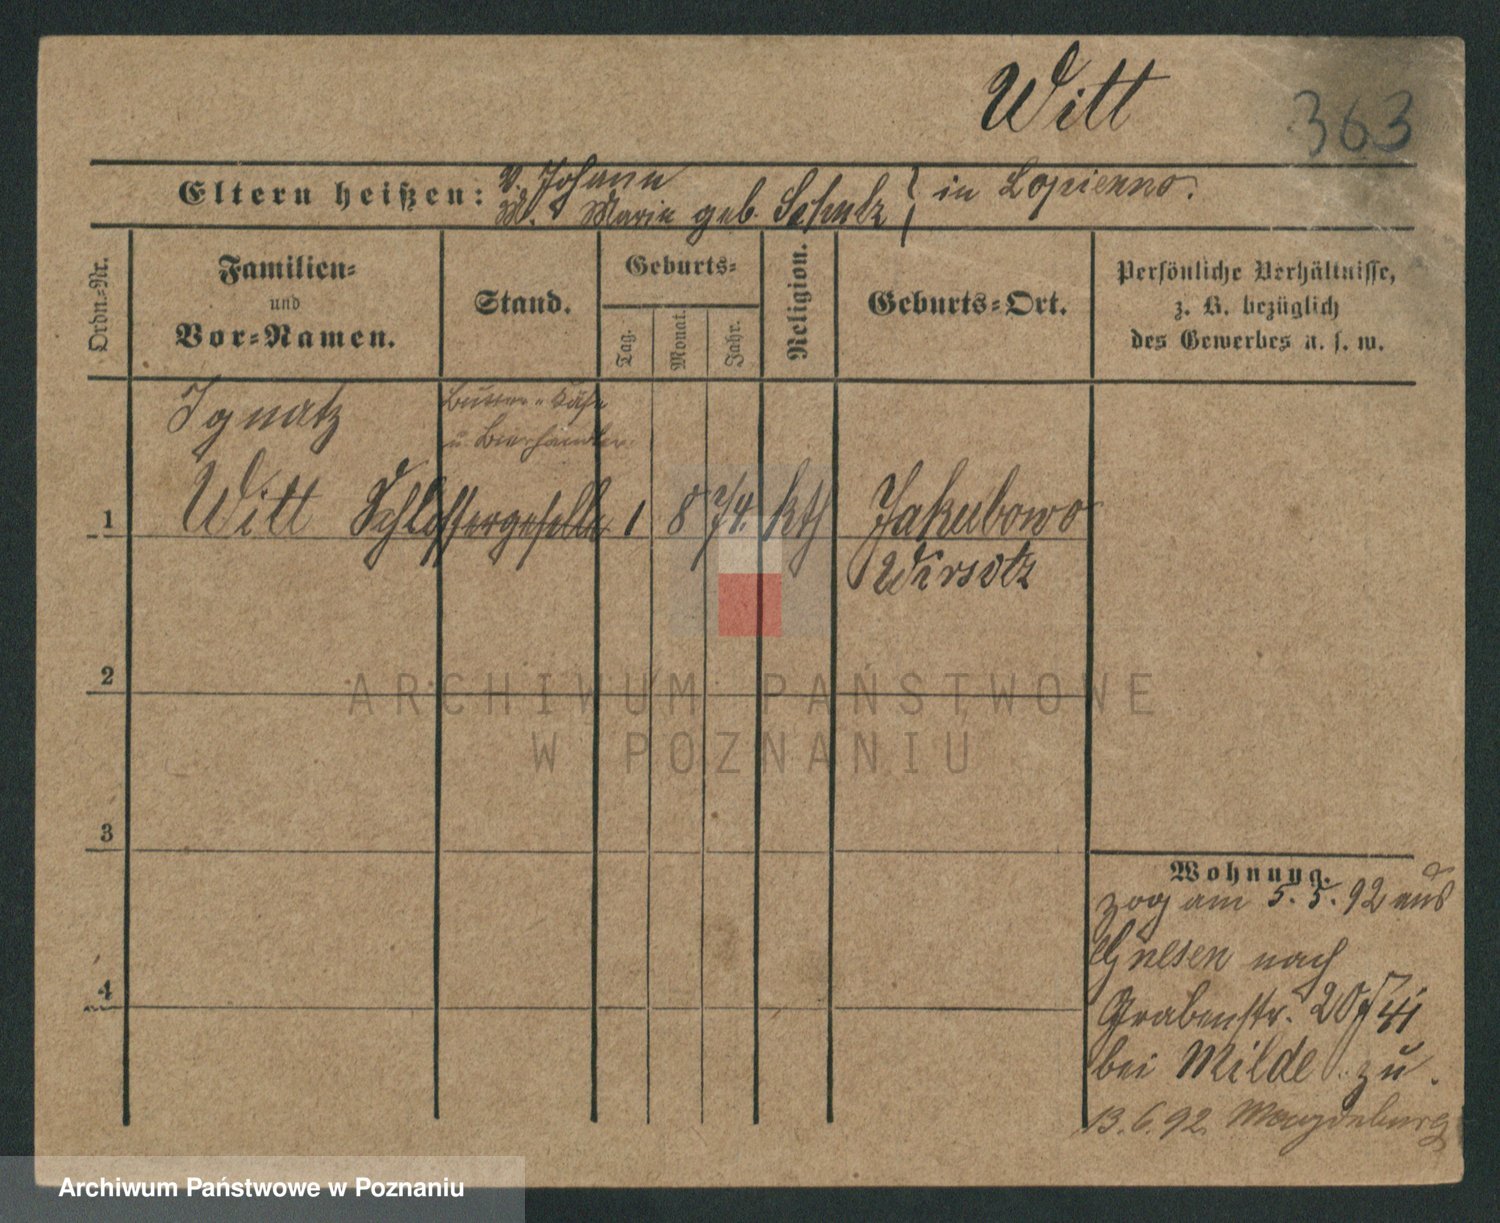 Witt
363
Eltern heißen: V. Johann
M. Marie geb. Schulz } in Lopienno.
Ordn.-Nr.
Familien-
und
Vor-Namen.
Stand.
Geburts-
Tag.
Monat.
Jahr.
Religion.
Geburts-Ort.
Persönliche Verhältnisse,
z. B. bezüglich
des Gewerbes u. s. w.
Ignatz
Butter- Käse
u. Bierhändler
1 Witt Schlossergeselle 1 8 74 kth Jakubowo
Wirsitz
2
3
4
Wohnung.
zog am 5. 5. 92 aus
Gnesen nach
Grabenstr. 20
bei Milde zu.
13. 6. 92. Magdeburg
ARCHIWUM PAŃSTWOWE
W POZNANIU
Archiwum Państwowe w Poznaniu